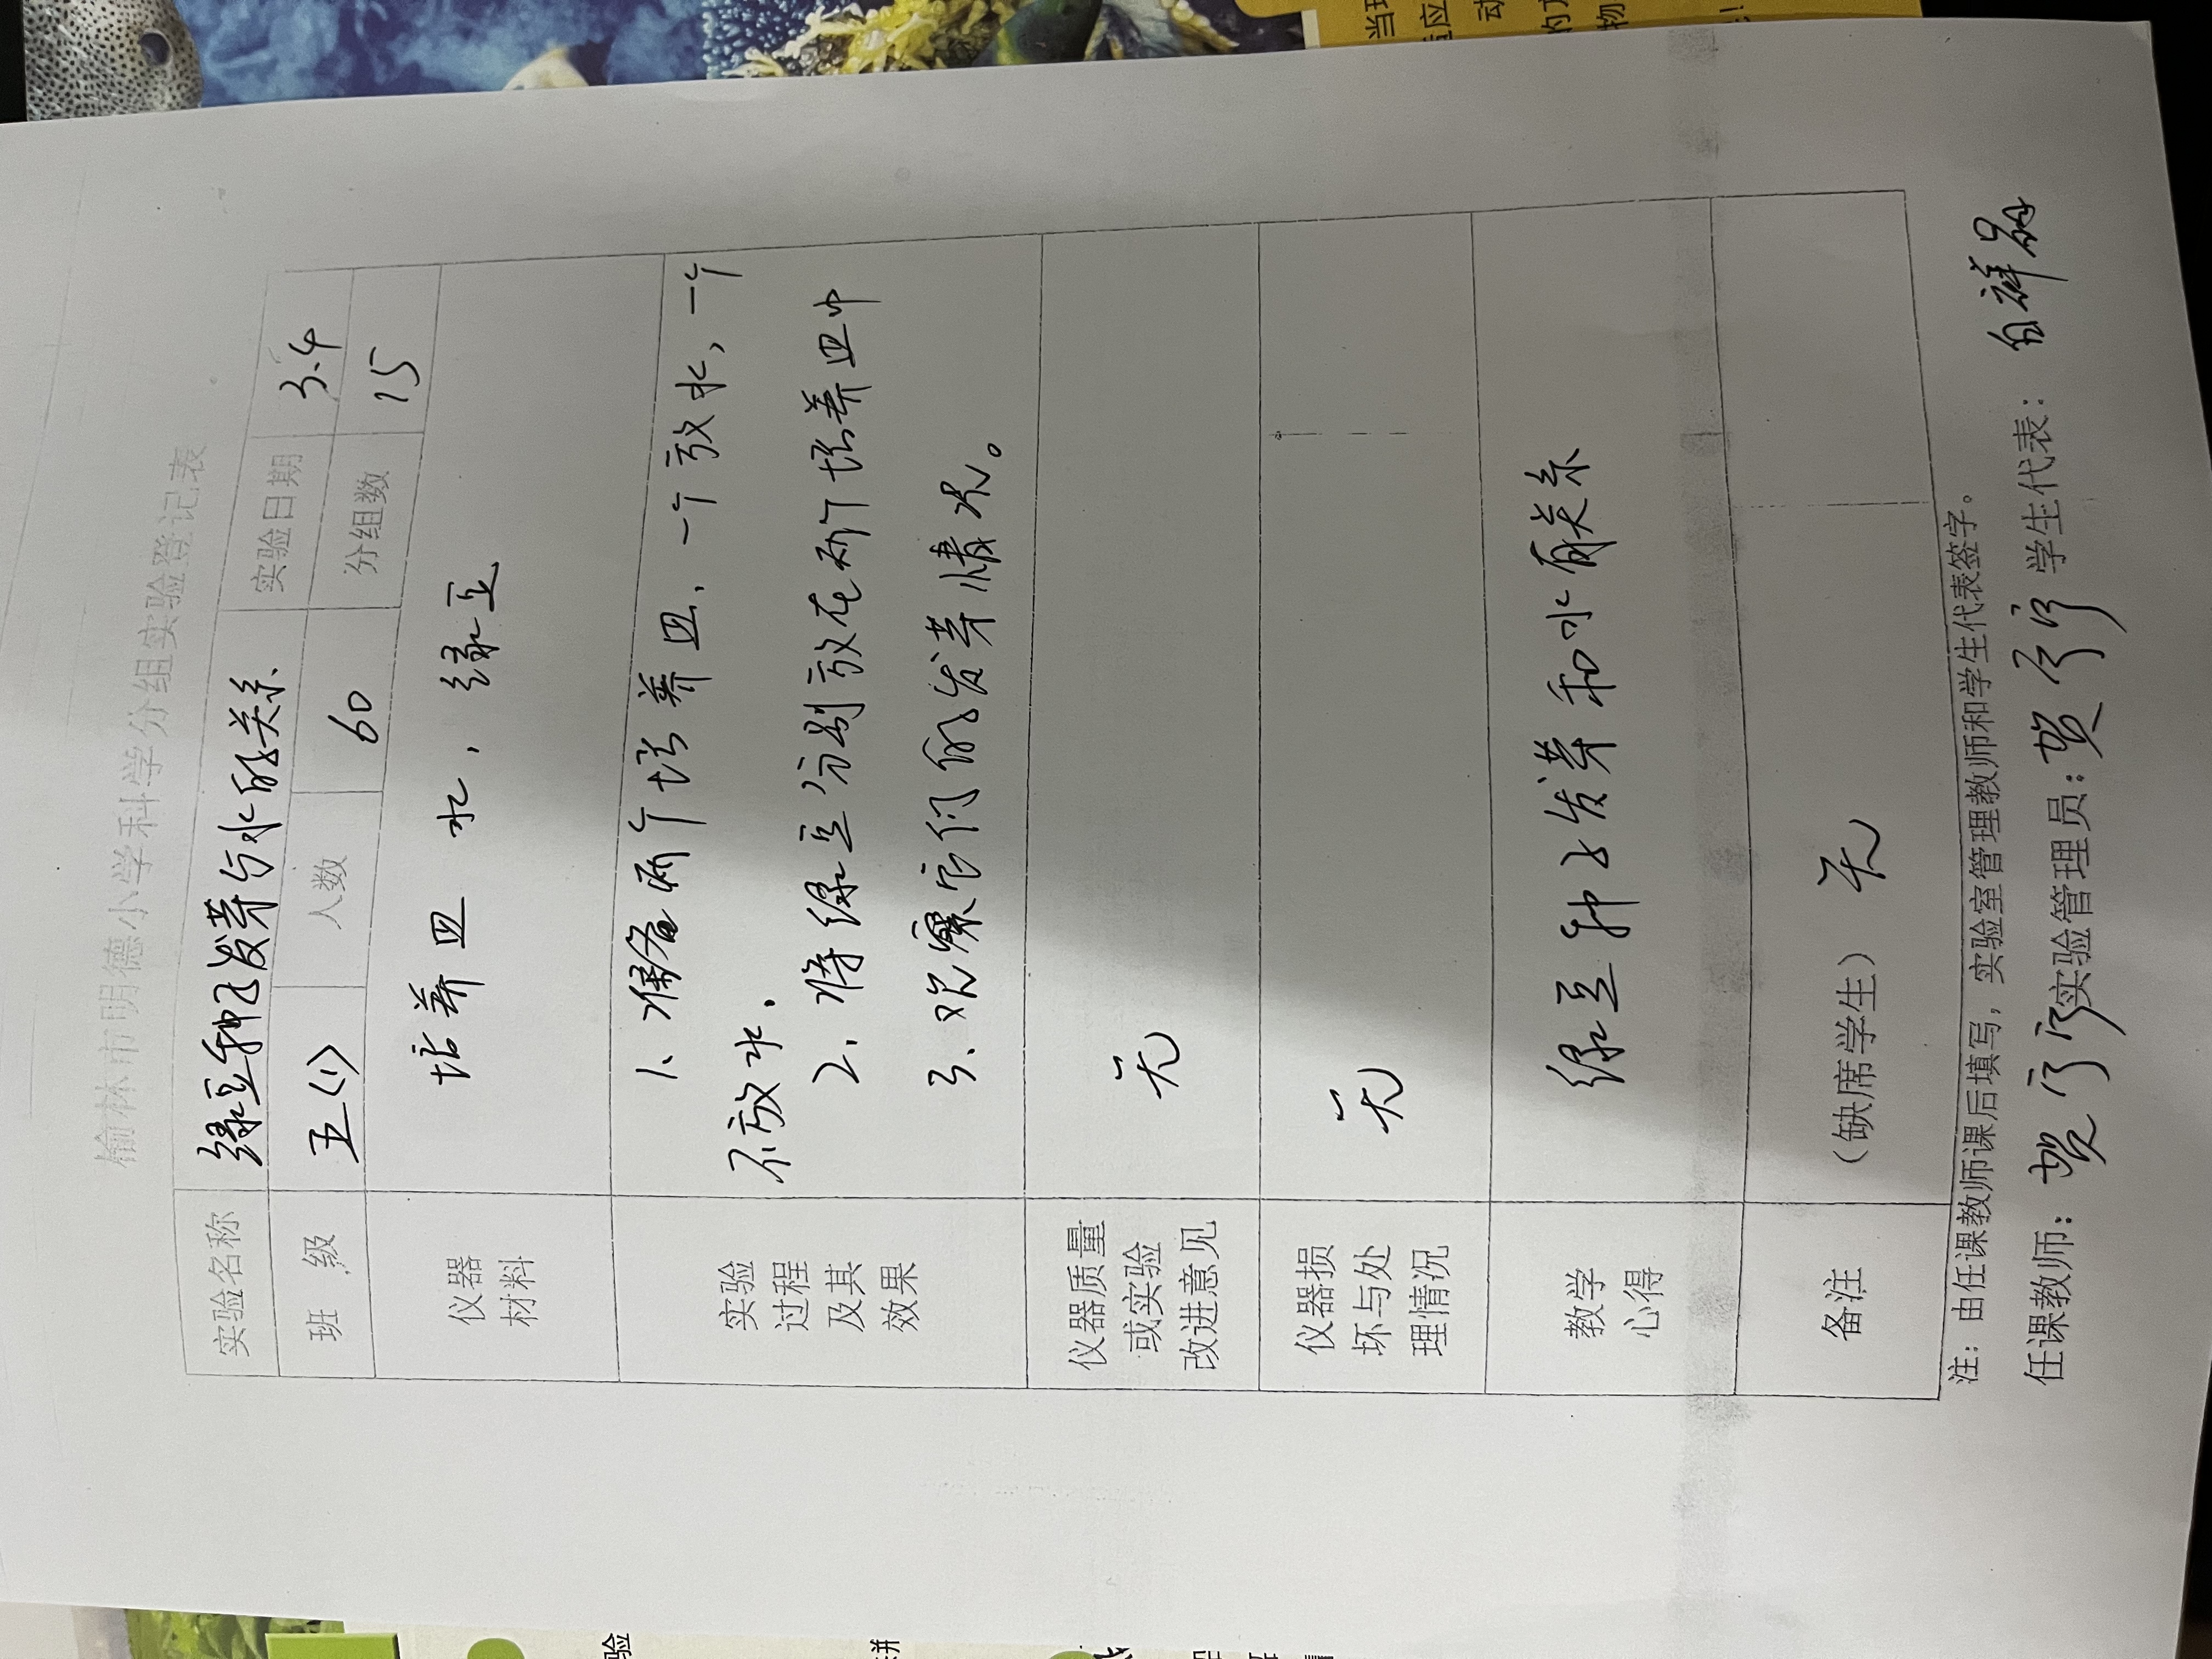 榆林市明德小学科学分组实验登记表
实验名称 绿豆种子发芽与水的关系 实验日期 3.4
班 级 五(1) 人数 60 分组数 15
仪器材料 培养皿 水, 绿豆
实验过程及其效果
1、准备两个培养皿, 一个放水, 一个
不放水.
2、将绿豆分别放在两个培养皿中
3、观察它们的发芽情况。
仪器质量或实验改进意见 无
仪器损坏与处理情况 无
教学心得 绿豆种子发芽和水有关系
备注 (缺席学生) 无
注: 由任课教师课后填写, 实验室管理教师和学生代表签字。
任课教师: 贺 实验管理员: 贺 学生代表: 白祥